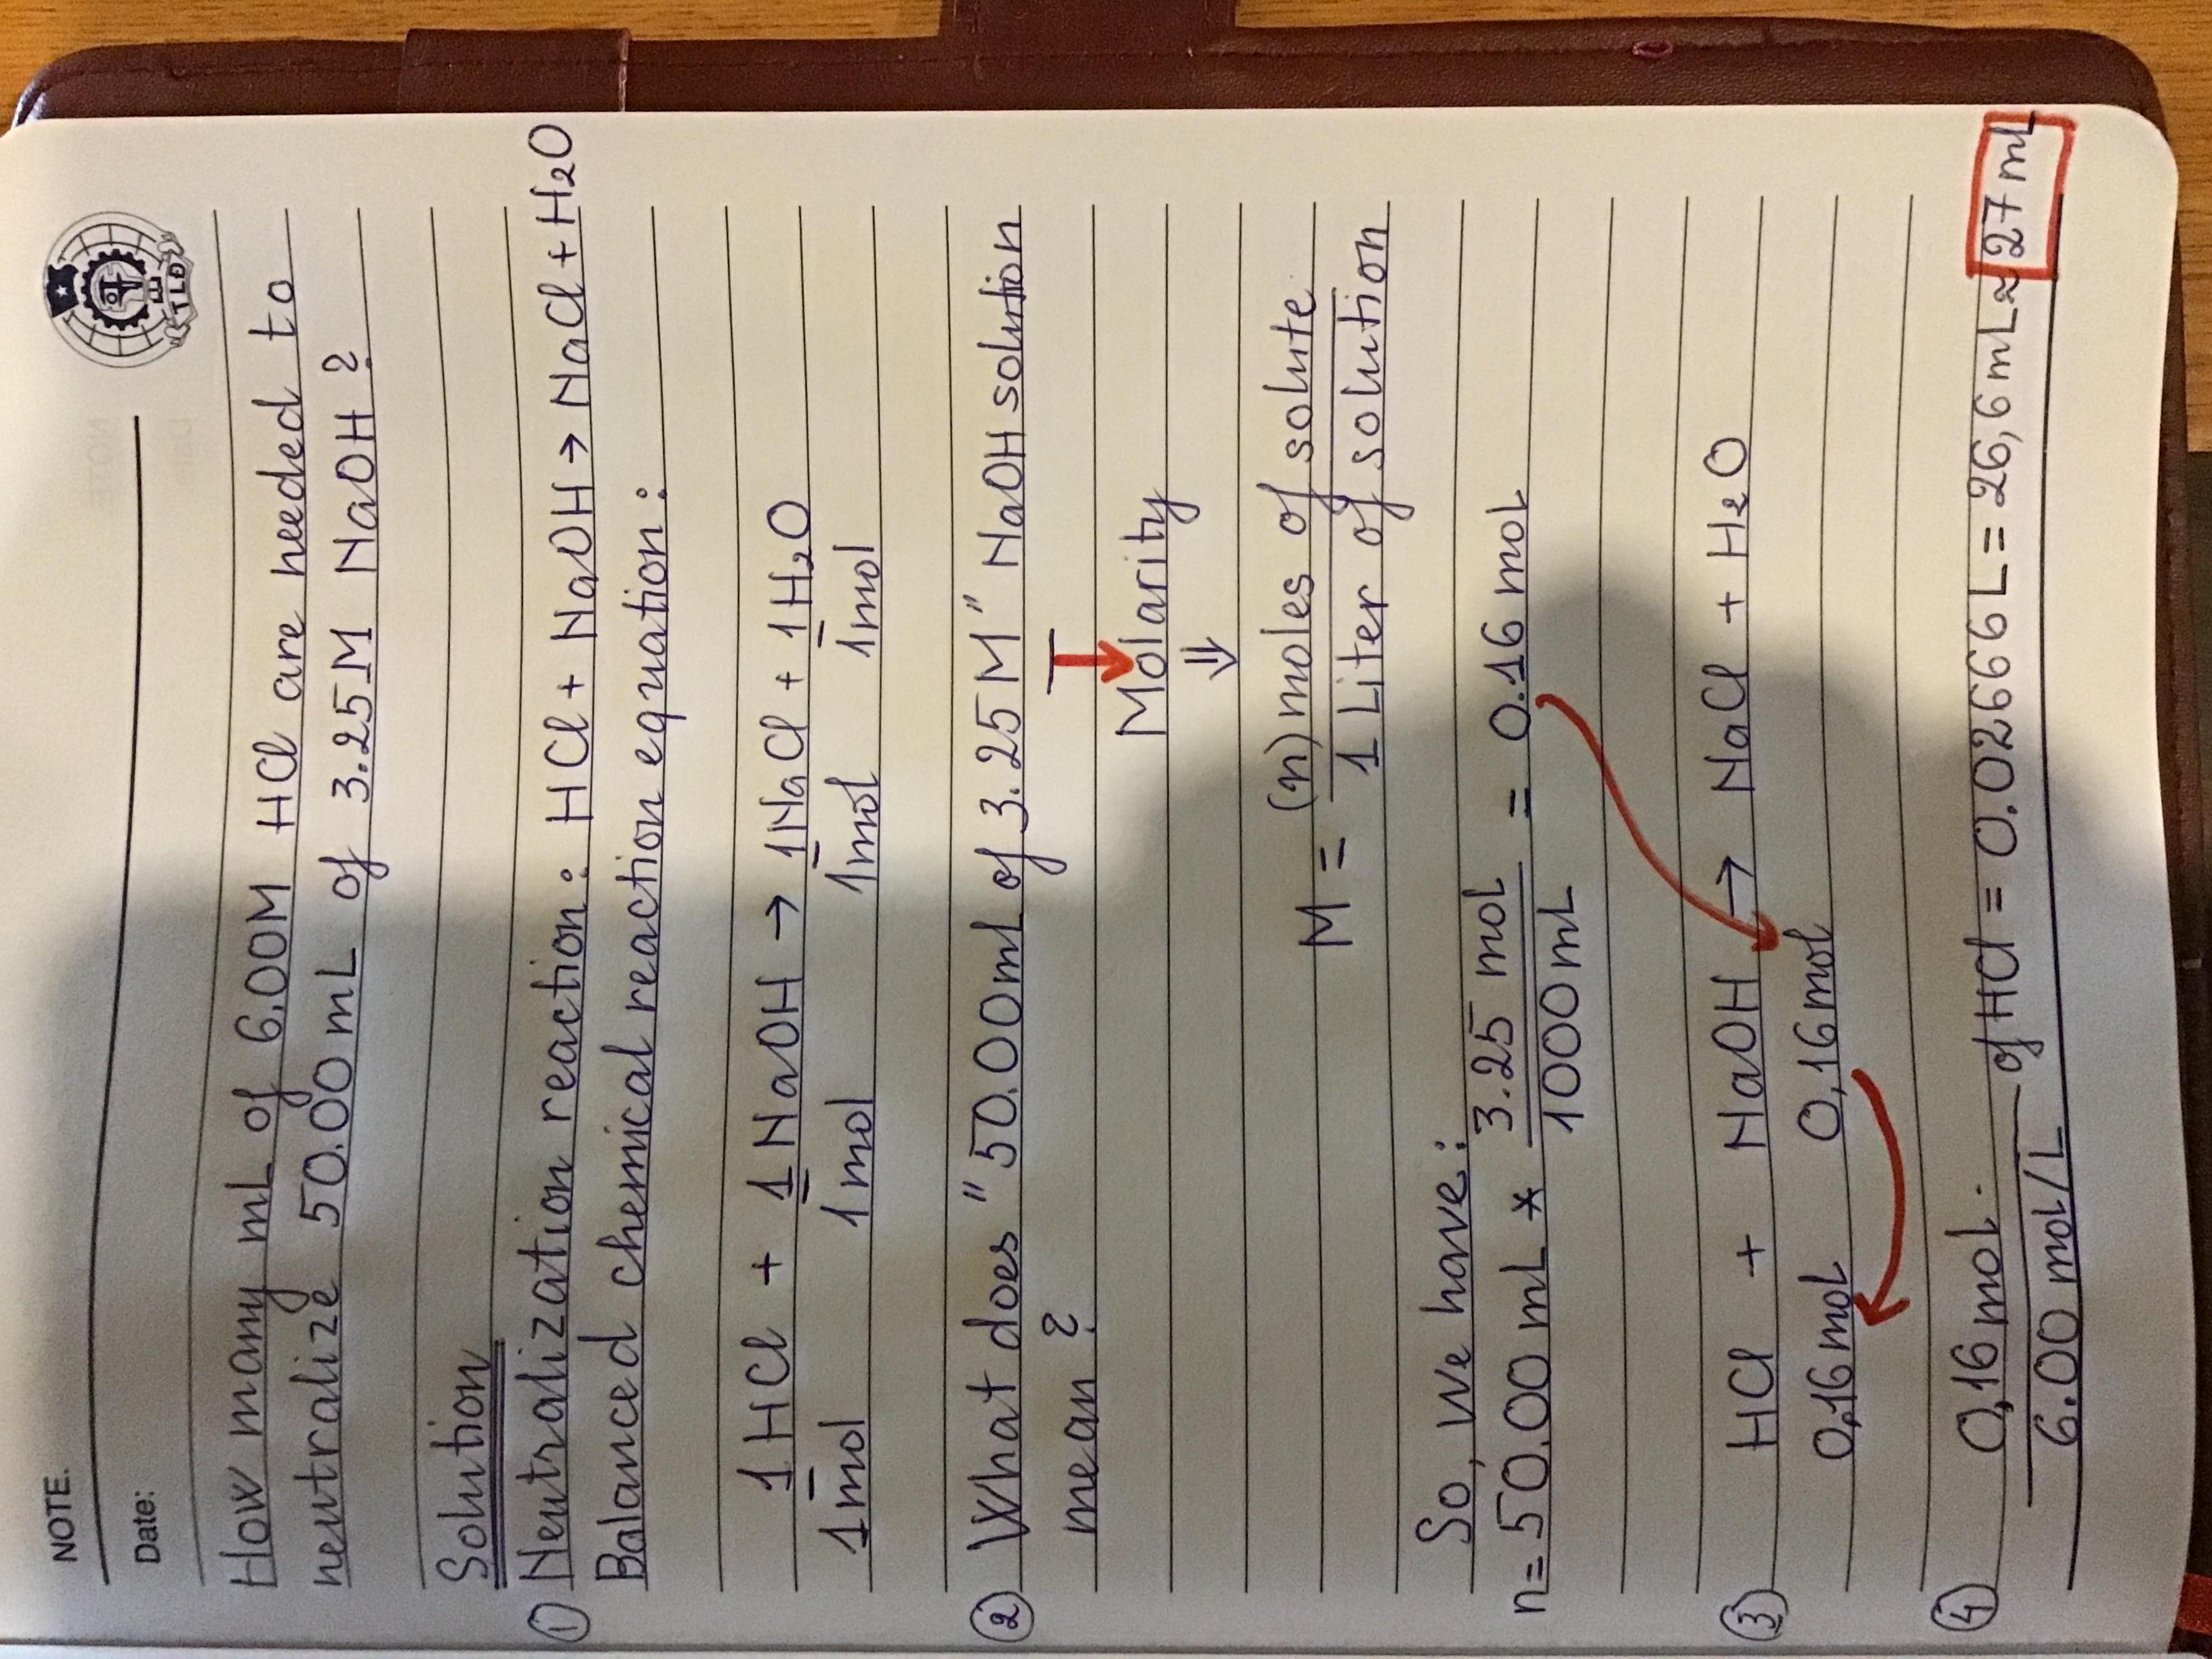 NOTE.
Date:
TLD
How many mL of 6.00M HCl are needed to
neutralize 50.00 mL of 3.25M NaOH?
Solution
① Neutralization reaction: HCl + NaOH → NaCl + H₂O
Balanced chemical reaction equation:
1HCl + 1NaOH → 1NaCl + 1H₂O
1mol 1mol 1mol 1mol
② What does "50.00ml of 3.25M" NaOH solution
mean?
Molarity
⇓
M = (n)moles of solute / 1 Liter of solution
So, We have:
n = 50.00 mL * 3.25 mol / 1000 mL = 0.16 mol
③ HCl + NaOH → NaCl + H₂O
0,16mol 0,16mol
④ 0,16 mol. / 6.00 mol/L of HCl = 0.02666 L = 26,6 mL ≈ 27 mL